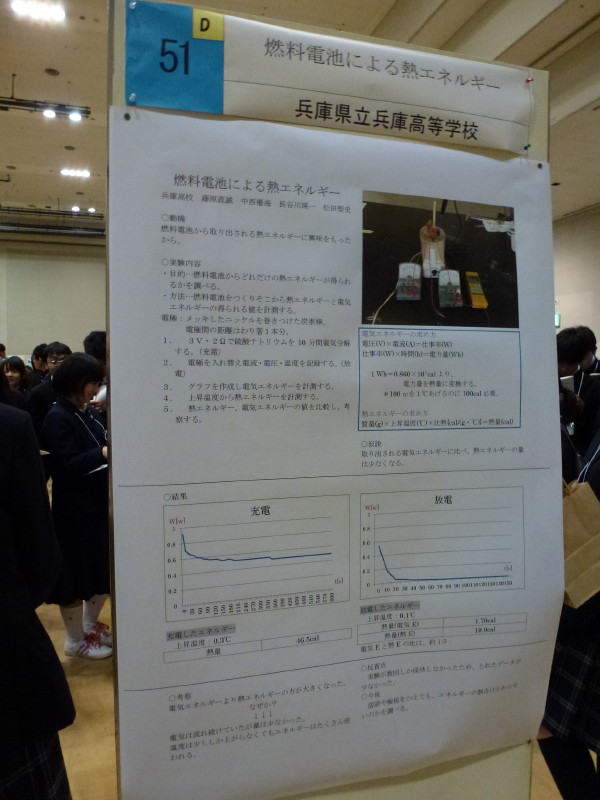 51
D
燃料電池による熱エネルギー
兵庫県立兵庫高等学校
燃料電池による熱エネルギー
兵庫高校
○動機
燃料電池から取り出される熱エネルギーに興味をもったから。
○実験内容
・目的…燃料電池からどれだけの熱エネルギーが得られるかを調べる。
・方法…燃料電池をつくりそこから熱エネルギーと電気エネルギーの得られる値を計測する。
電極：メッキしたニッケルを巻きつけた炭素棒。
電極間の距離はわり箸1本分。
1. 3V・2Ωで硫酸ナトリウムを10分間電気分解する。（充電）
2. 電極を入れ替え電流・電圧・温度を記録する。（放電）
3. グラフを作成し電気エネルギーを計測する。
4. 上昇温度から熱エネルギーを計測する。
5. 熱エネルギー、電気エネルギーの値を比較し、考察する。
電気エネルギーの求め方
電圧(V)×電流(A)＝仕事率(W)
仕事率(W)×時間(h)＝電力量(Wh)
より、
電力量を熱量に変換する。
必要。
熱エネルギーの求め方
質量(g)×上昇温度(℃)×比熱[cal/(g・℃)]＝熱量(cal)
○仮説
取り出される電気エネルギーに比べ、熱エネルギーの量は少なくなる。
○結果
充電
W[w]
1
0.8
0.6
0.4
0.2
0
放電
W[w]
1
0.8
0.6
0.4
0.2
0
充電したエネルギー
上昇温度：0.3℃
熱量 46.5cal
放電したエネルギー
上昇温度：0.1℃
熱量(電気E) 1.70cal
熱量(熱E) 19.0cal
電気Eと熱Eの比は、約
○考察
電気エネルギーより熱エネルギーの方が大きくなった。
なぜか？
↓↓↓
電気は流れ続けていたが量は少なかった。
温度は少ししか上がらなくてもエネルギーはたくさん使われる。
○反省点
実験が数回しか成功しなかったため、とれたデータが少なかった。
○今後